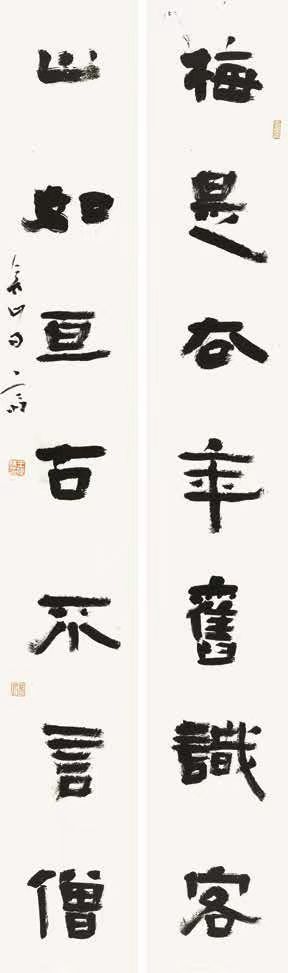 梅是去年舊識客
山如亘古不言僧